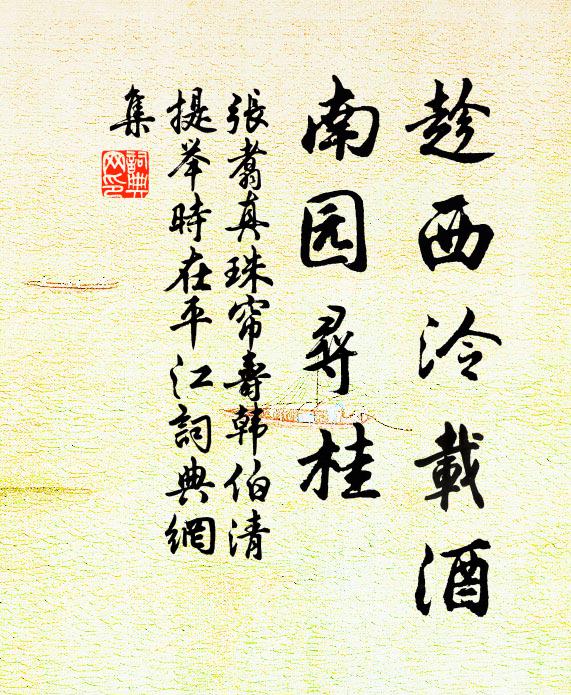 趁西泠載酒
南园尋桂
張翥真珠帘壽韩伯清
提举時在平江詞典網
集
詞典
网印